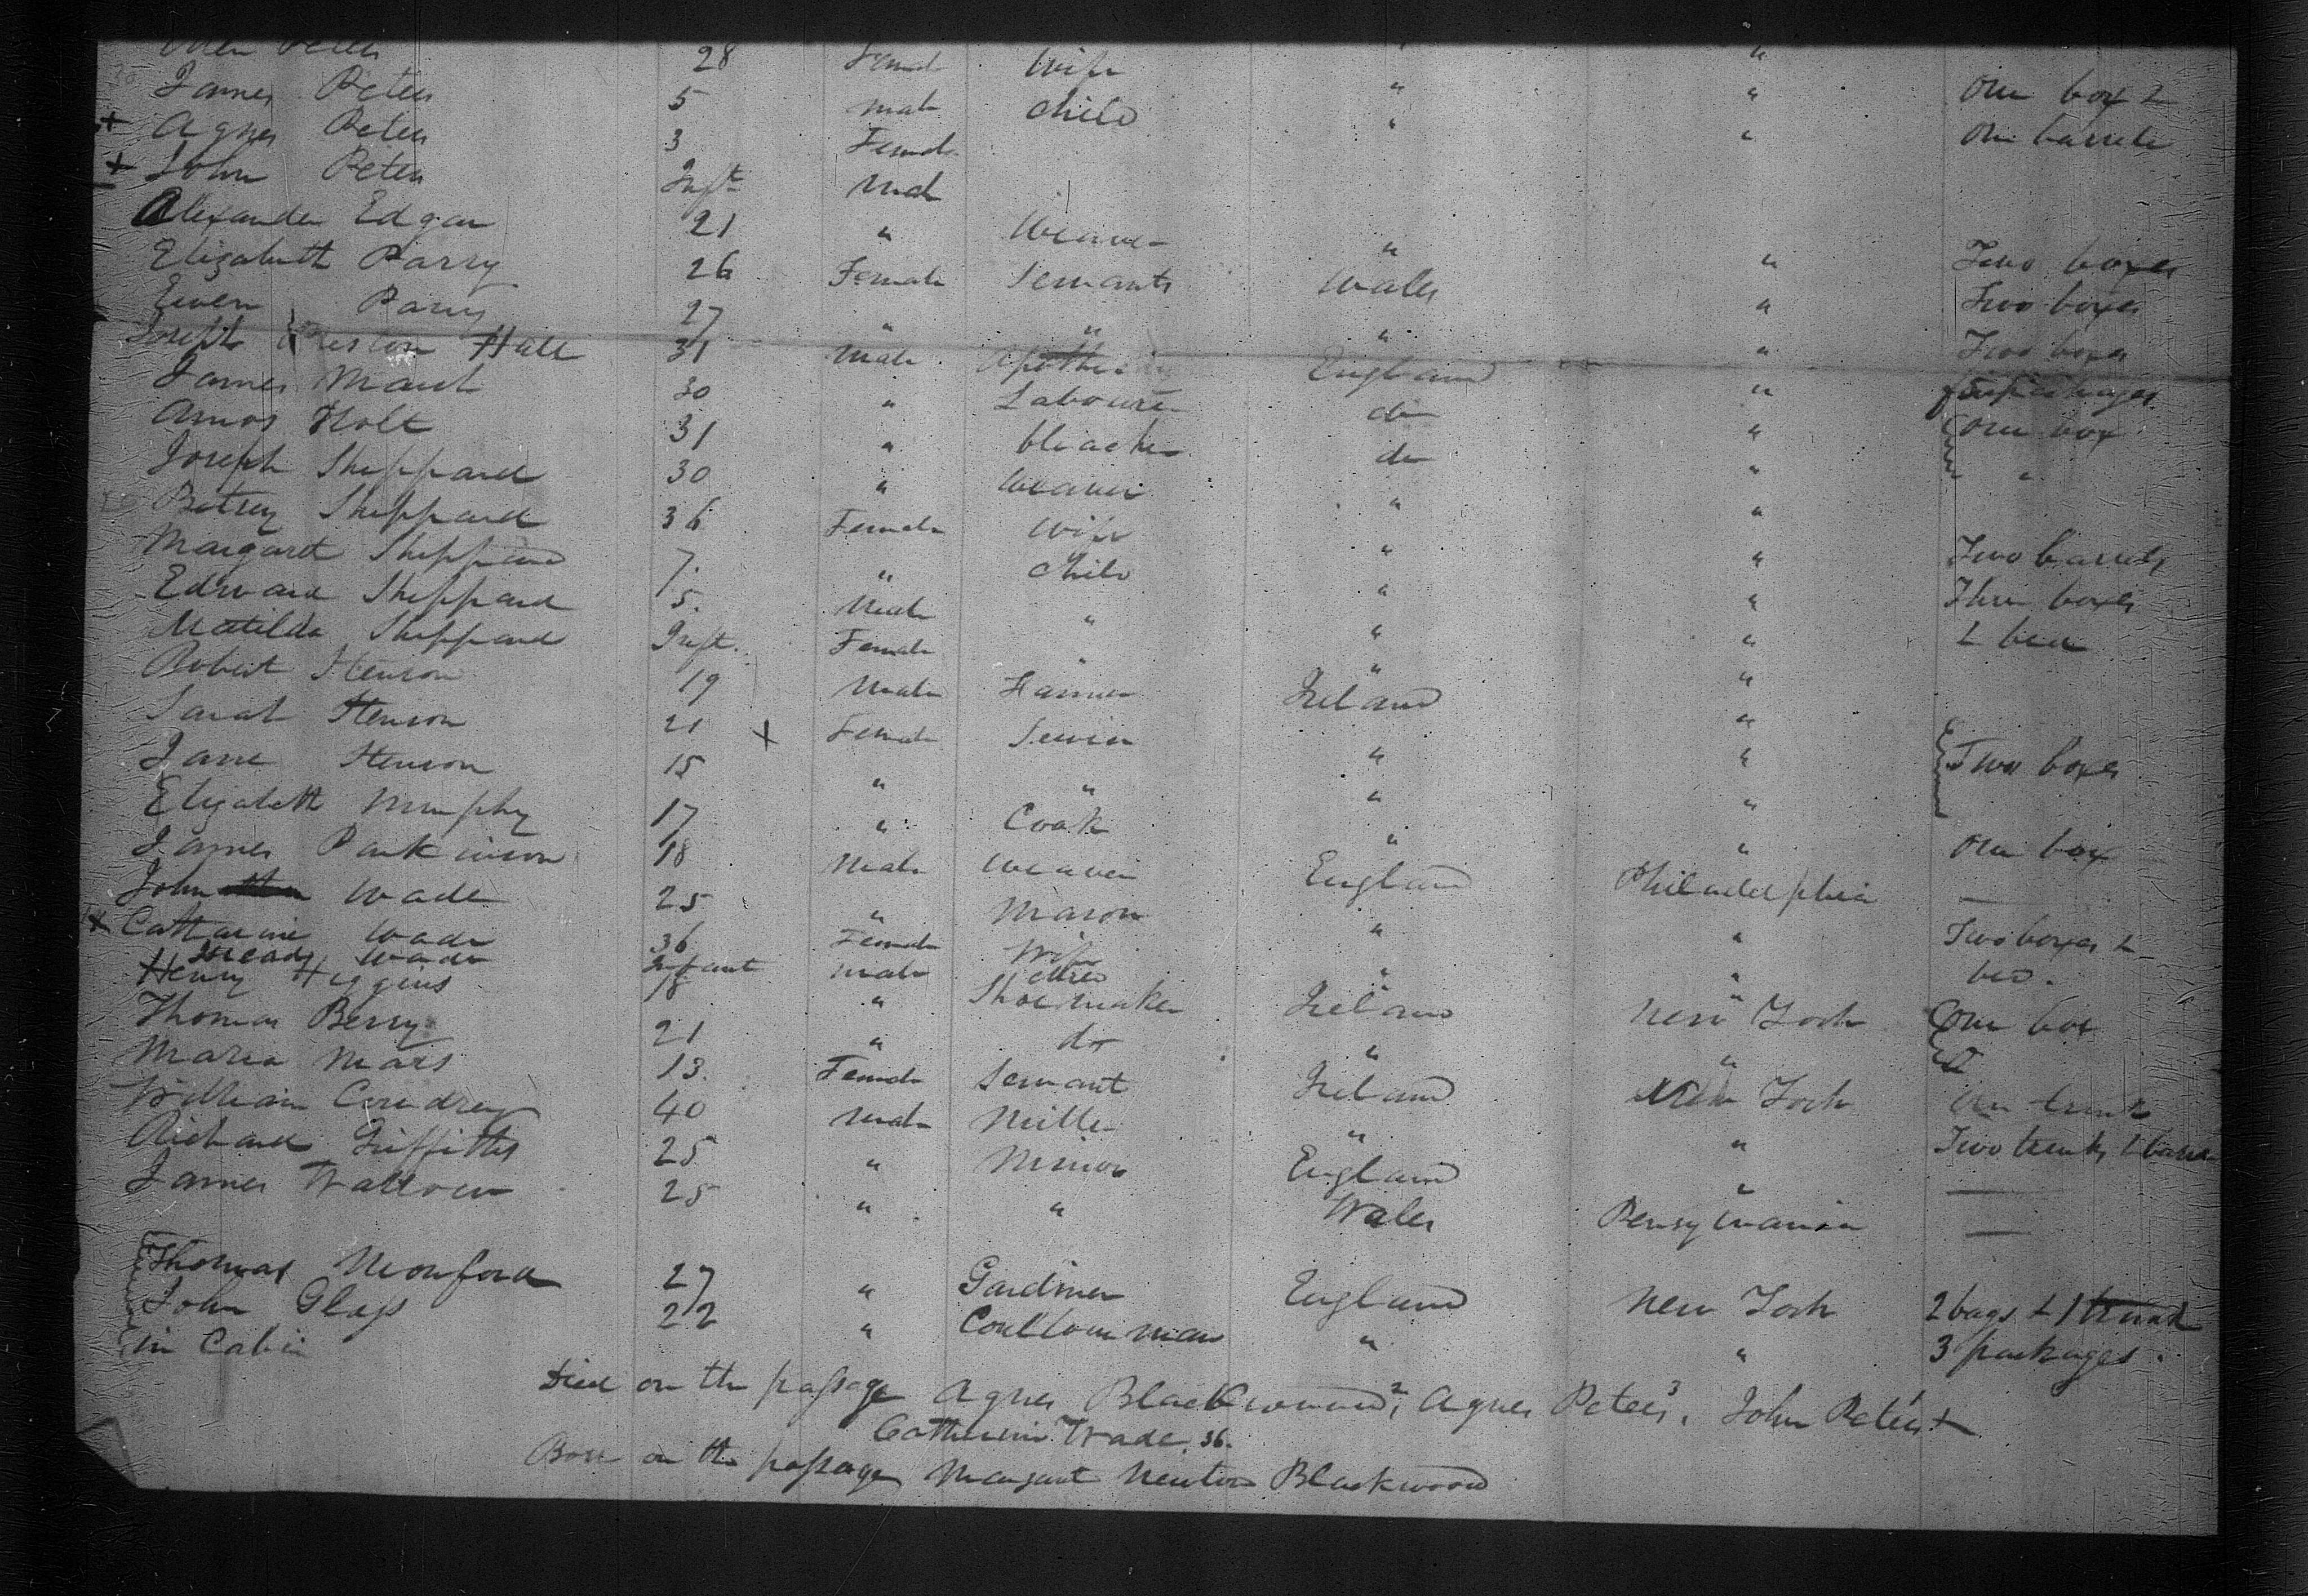 Peters 28 Female Wife " "
James Peters 5 Male Child " " One box &
+ Agnes Peters 3 Female " " One barrele
+ John Peters Inft Male
Alexander Edgar 21 " Weaver " " Two boxes
Elizabeth Parry 26 Female Servants Wales " Two boxes
Parry 27 " " " " Two boxes
Joseph Hall 31 Male England "
James 30 " Labourer do " One box
Amos Holt 31 " bleacher do " "
Joseph Sheppard 30 " Weaver " "
Betsey Sheppard 36 Female Wife " " Two barrels
Margaret Sheppard 7. " Child " " Three boxes
Edward Sheppard 5. Male " " " & bed
Matilda Sheppard Inft. Female " " "
Robert Henson 19 Male Farmer Ireland "
Sarah Henson 21 + Female " " Two boxes
Jane Henson 15 " " " "
Elizabeth Murphy 17 " Cook " " One box
James Parkinson 18 Male Weaver England Philadelphia —
John Wade 25 " Mason " " Two boxes &
+ Catharine Wade 36 Female Wife " " bed.
Wade Infant Male Child
Henry Higgins 18 " Shoemaker Ireland New York One box
Thomas Berry 21 " do " "
Maria Mars 13. Female Servant Ireland New York trunk
William 40 Male Miller " " Two trunks
Richard Griffiths 25 " Minor England " —
James 25 " " Wales Pensylvania —
Thomas Monford 27 " Gardiner England New York 2 bags & 1 trunk
John Glass 22 " " " 3 packages.
in Cabin
Died on the passage Agnes Blackwood, 2 Agnes Peters, 3 John Peters 1 +
Catherine Wade. 36.
Born on the passage Margaret Newton Blackwood